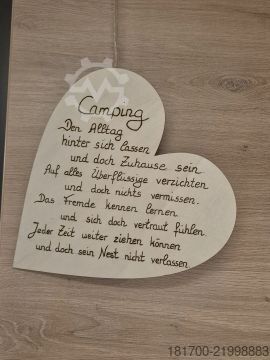 Camping
Den Alltag
hinter sich lassen
und doch Zuhause sein
Auf alles Überflüssige verzichten
und doch nichts vermissen.
Das Fremde kennen lernen
und sich doch vertraut fühlen
Jeder Zeit weiter ziehen können
und doch sein Nest nicht verlassen
181700-21998883